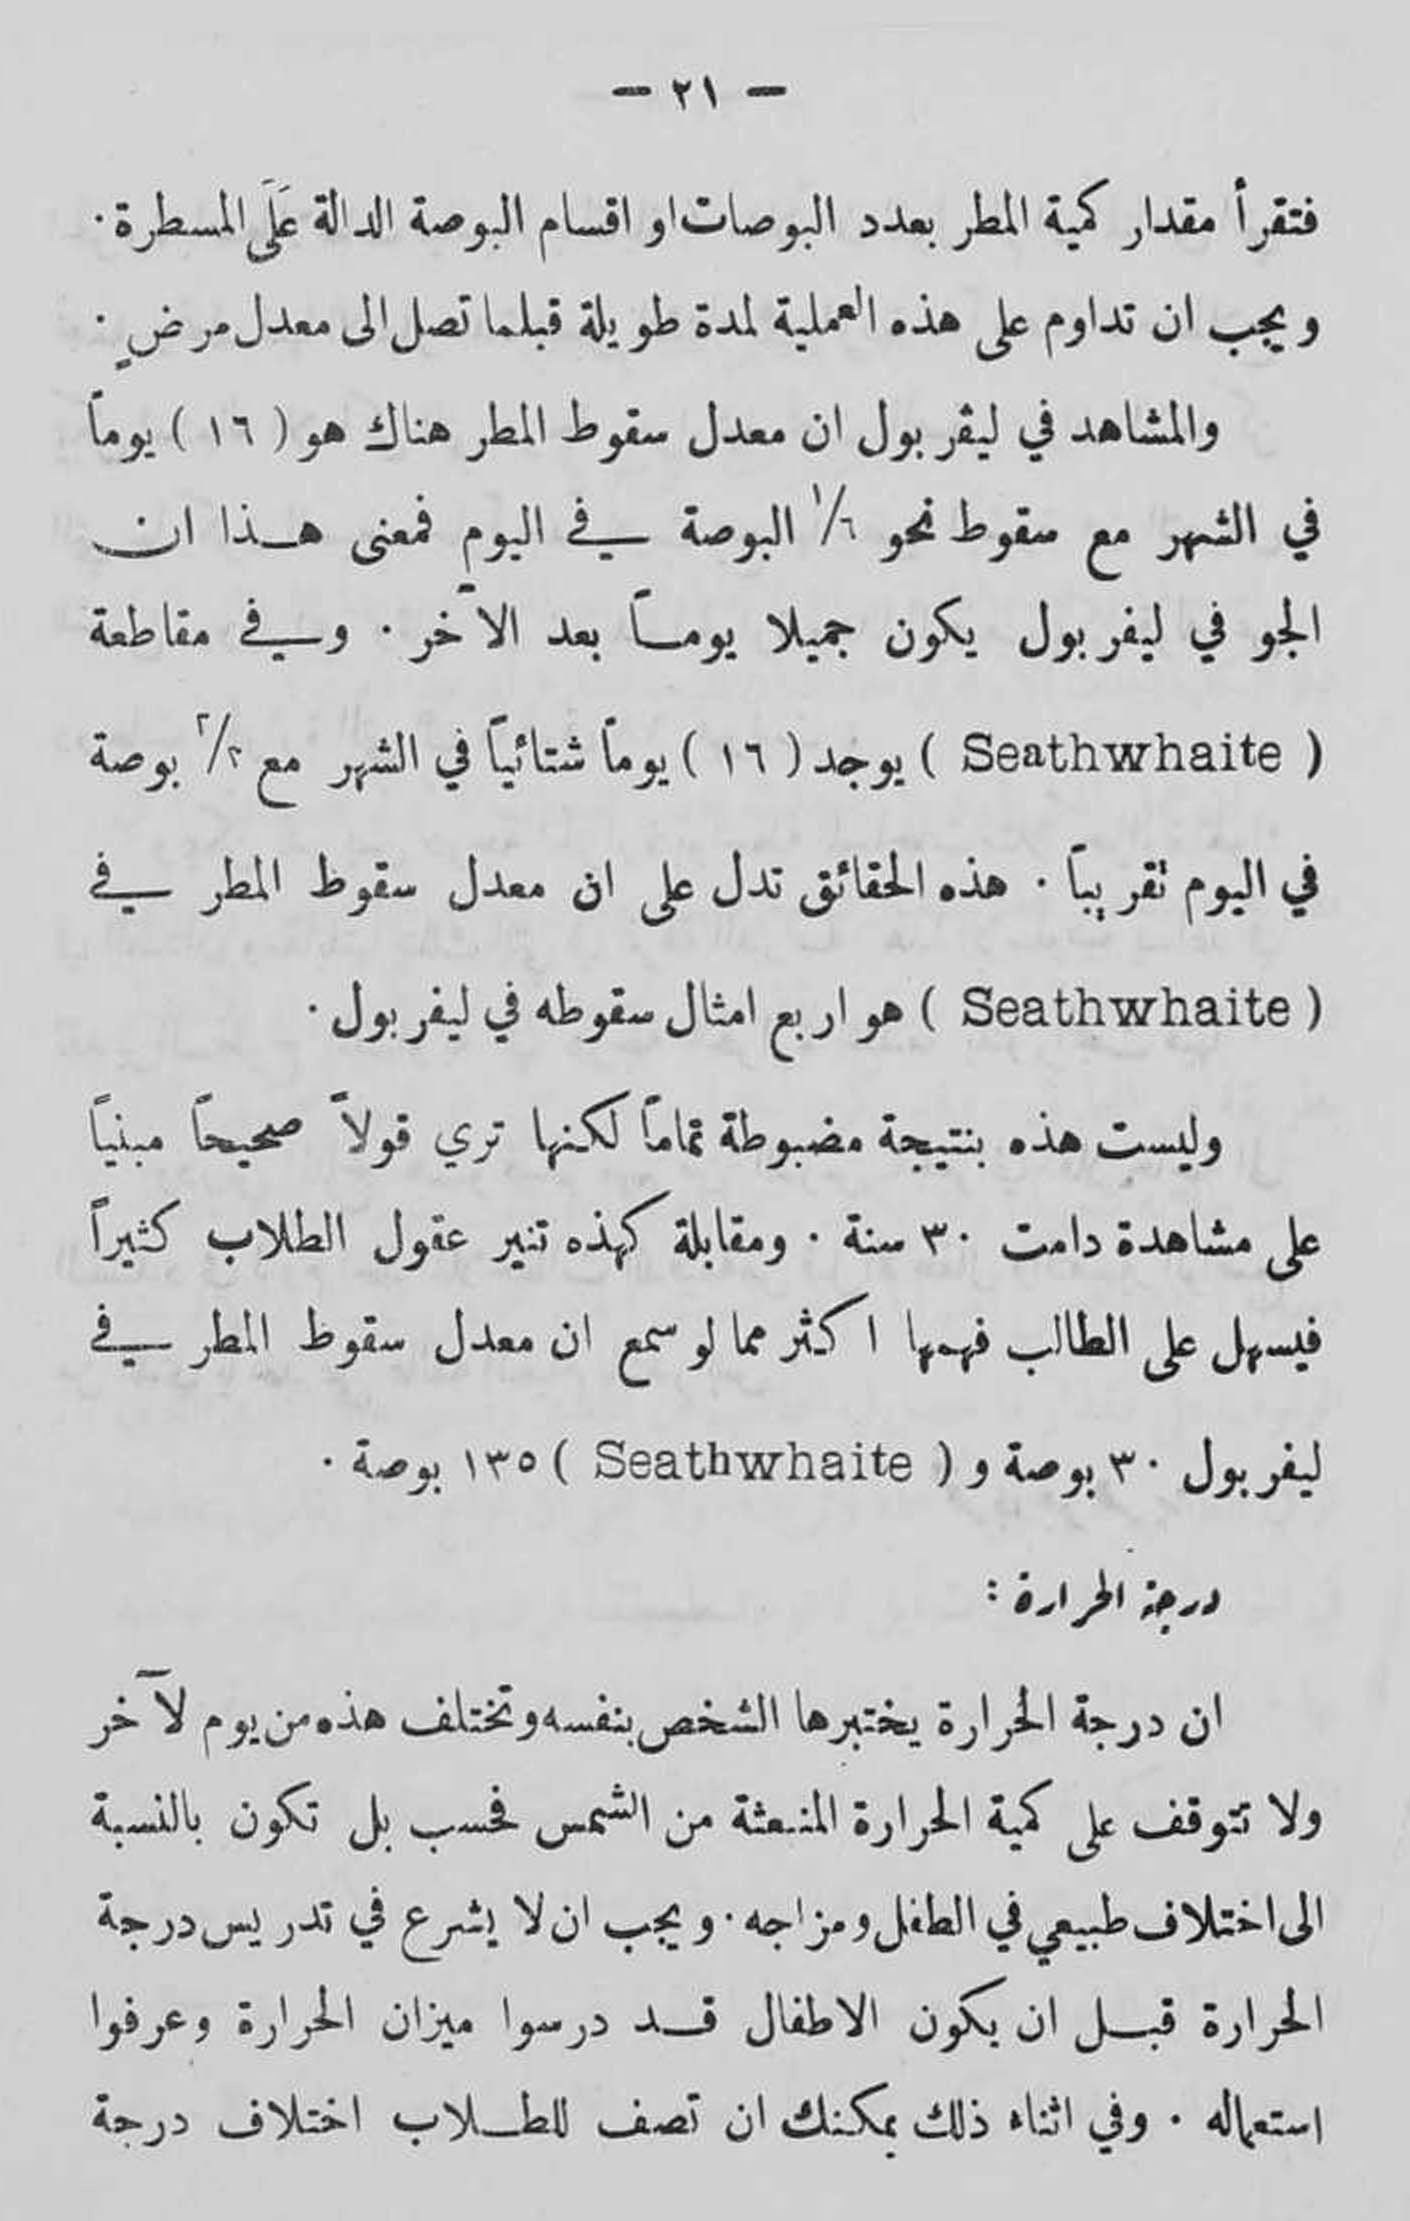 — ٢١ —
فتقرأ مقدار كمية المطر بعدد البوصات او اقسام البوصة الدالة عَلَى المسطرة .
ويجب ان تداوم على هذه العملية لمدة طويلة قبلما تصل الى معدل مرضٍ .
والمشاهد في ليڤربول ان معدل سقوط المطر هناك هو ( ١٦ ) يوماً
في الشهر مع سقوط نحو ١/٦ البوصة في اليوم فمعنى هذا ان
الجو في ليفربول يكون جميلا يوماً بعد الآخر . وفي مقاطعة
( Seathwhaite ) يوجد ( ١٦ ) يوماً شتائياً في الشهر مع ٢/٢ بوصة
في اليوم تقريباً . هذه الحقائق تدل على ان معدل سقوط المطر في
( Seathwhaite ) هو اربع امثال سقوطه في ليفربول .
وليست هذه بنتيجة مضبوطة تماماً لكنها تري قولاً صحيحاً مبنياً
على مشاهدة دامت ٣٠ سنة . ومقابلة كهذه تنير عقول الطلاب كثيراً
فيسهل على الطالب فهمها اكثر مما لو سمع ان معدل سقوط المطر في
ليفربول ٣٠ بوصة و ( Seathwhaite ) ١٣٥ بوصة .
درجة الحرارة :
ان درجة الحرارة يختبرها الشخص بنفسه وتختلف هذه من يوم لآخر
ولا تتوقف على كمية الحرارة المنبعثة من الشمس فحسب بل تكون بالنسبة
الى اختلاف طبيعي في الطفل ومزاجه . ويجب ان لا يشرع في تدريس درجة
الحرارة قبل ان يكون الاطفال قد درسوا ميزان الحرارة وعرفوا
استعماله . وفي اثناء ذلك يمكنك ان تصف للطلاب اختلاف درجة